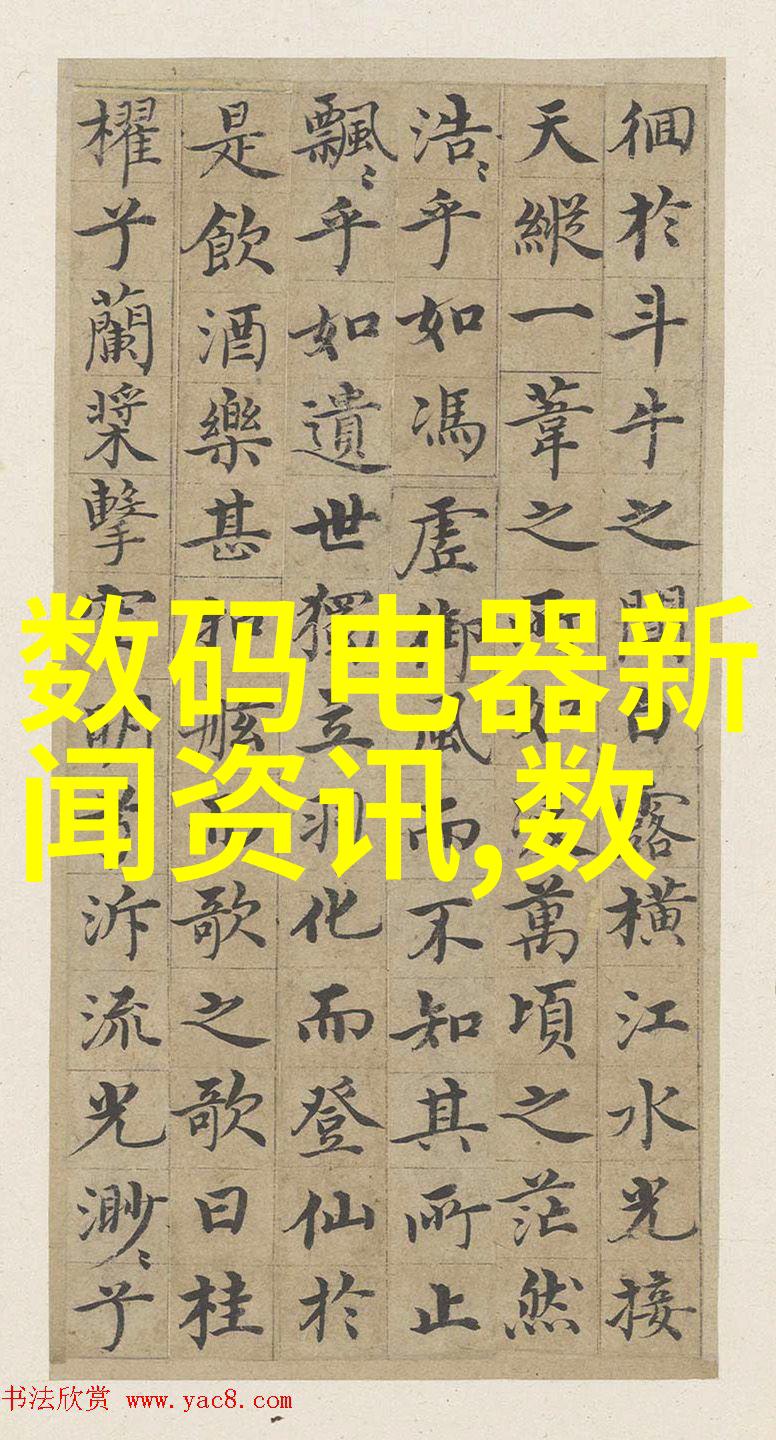 徊於斗牛之間白露橫江水光接
天縱一葦之所如凌萬頃之茫然
浩〻乎如馮虛御風而不知其所止
飄〻乎如遺世獨立羽化而登仙於
是飲酒樂甚扣舷而歌之歌曰桂
櫂兮蘭槳擊空明兮泝流光渺〻兮
数码电器新
闻资讯,数
书法欣赏 www.yac8.com